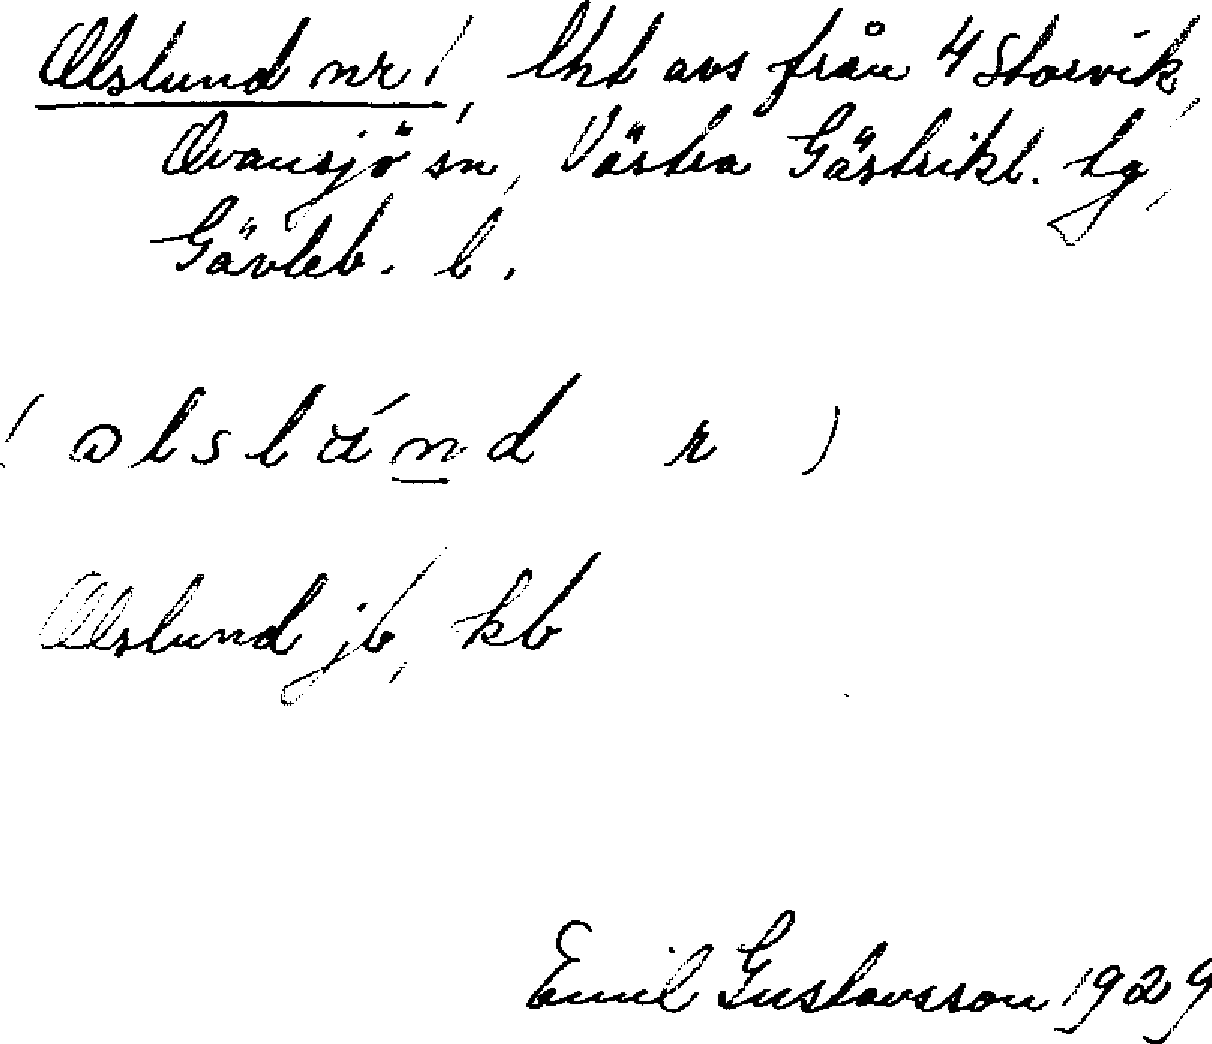 Olslund nr 1, lht avs från 4 Storvik,
Ovansjö sn, Västra Gästrikl. tg,
Gävleb. l.
Olslund jb, kb
Emil Gustavsson 1929